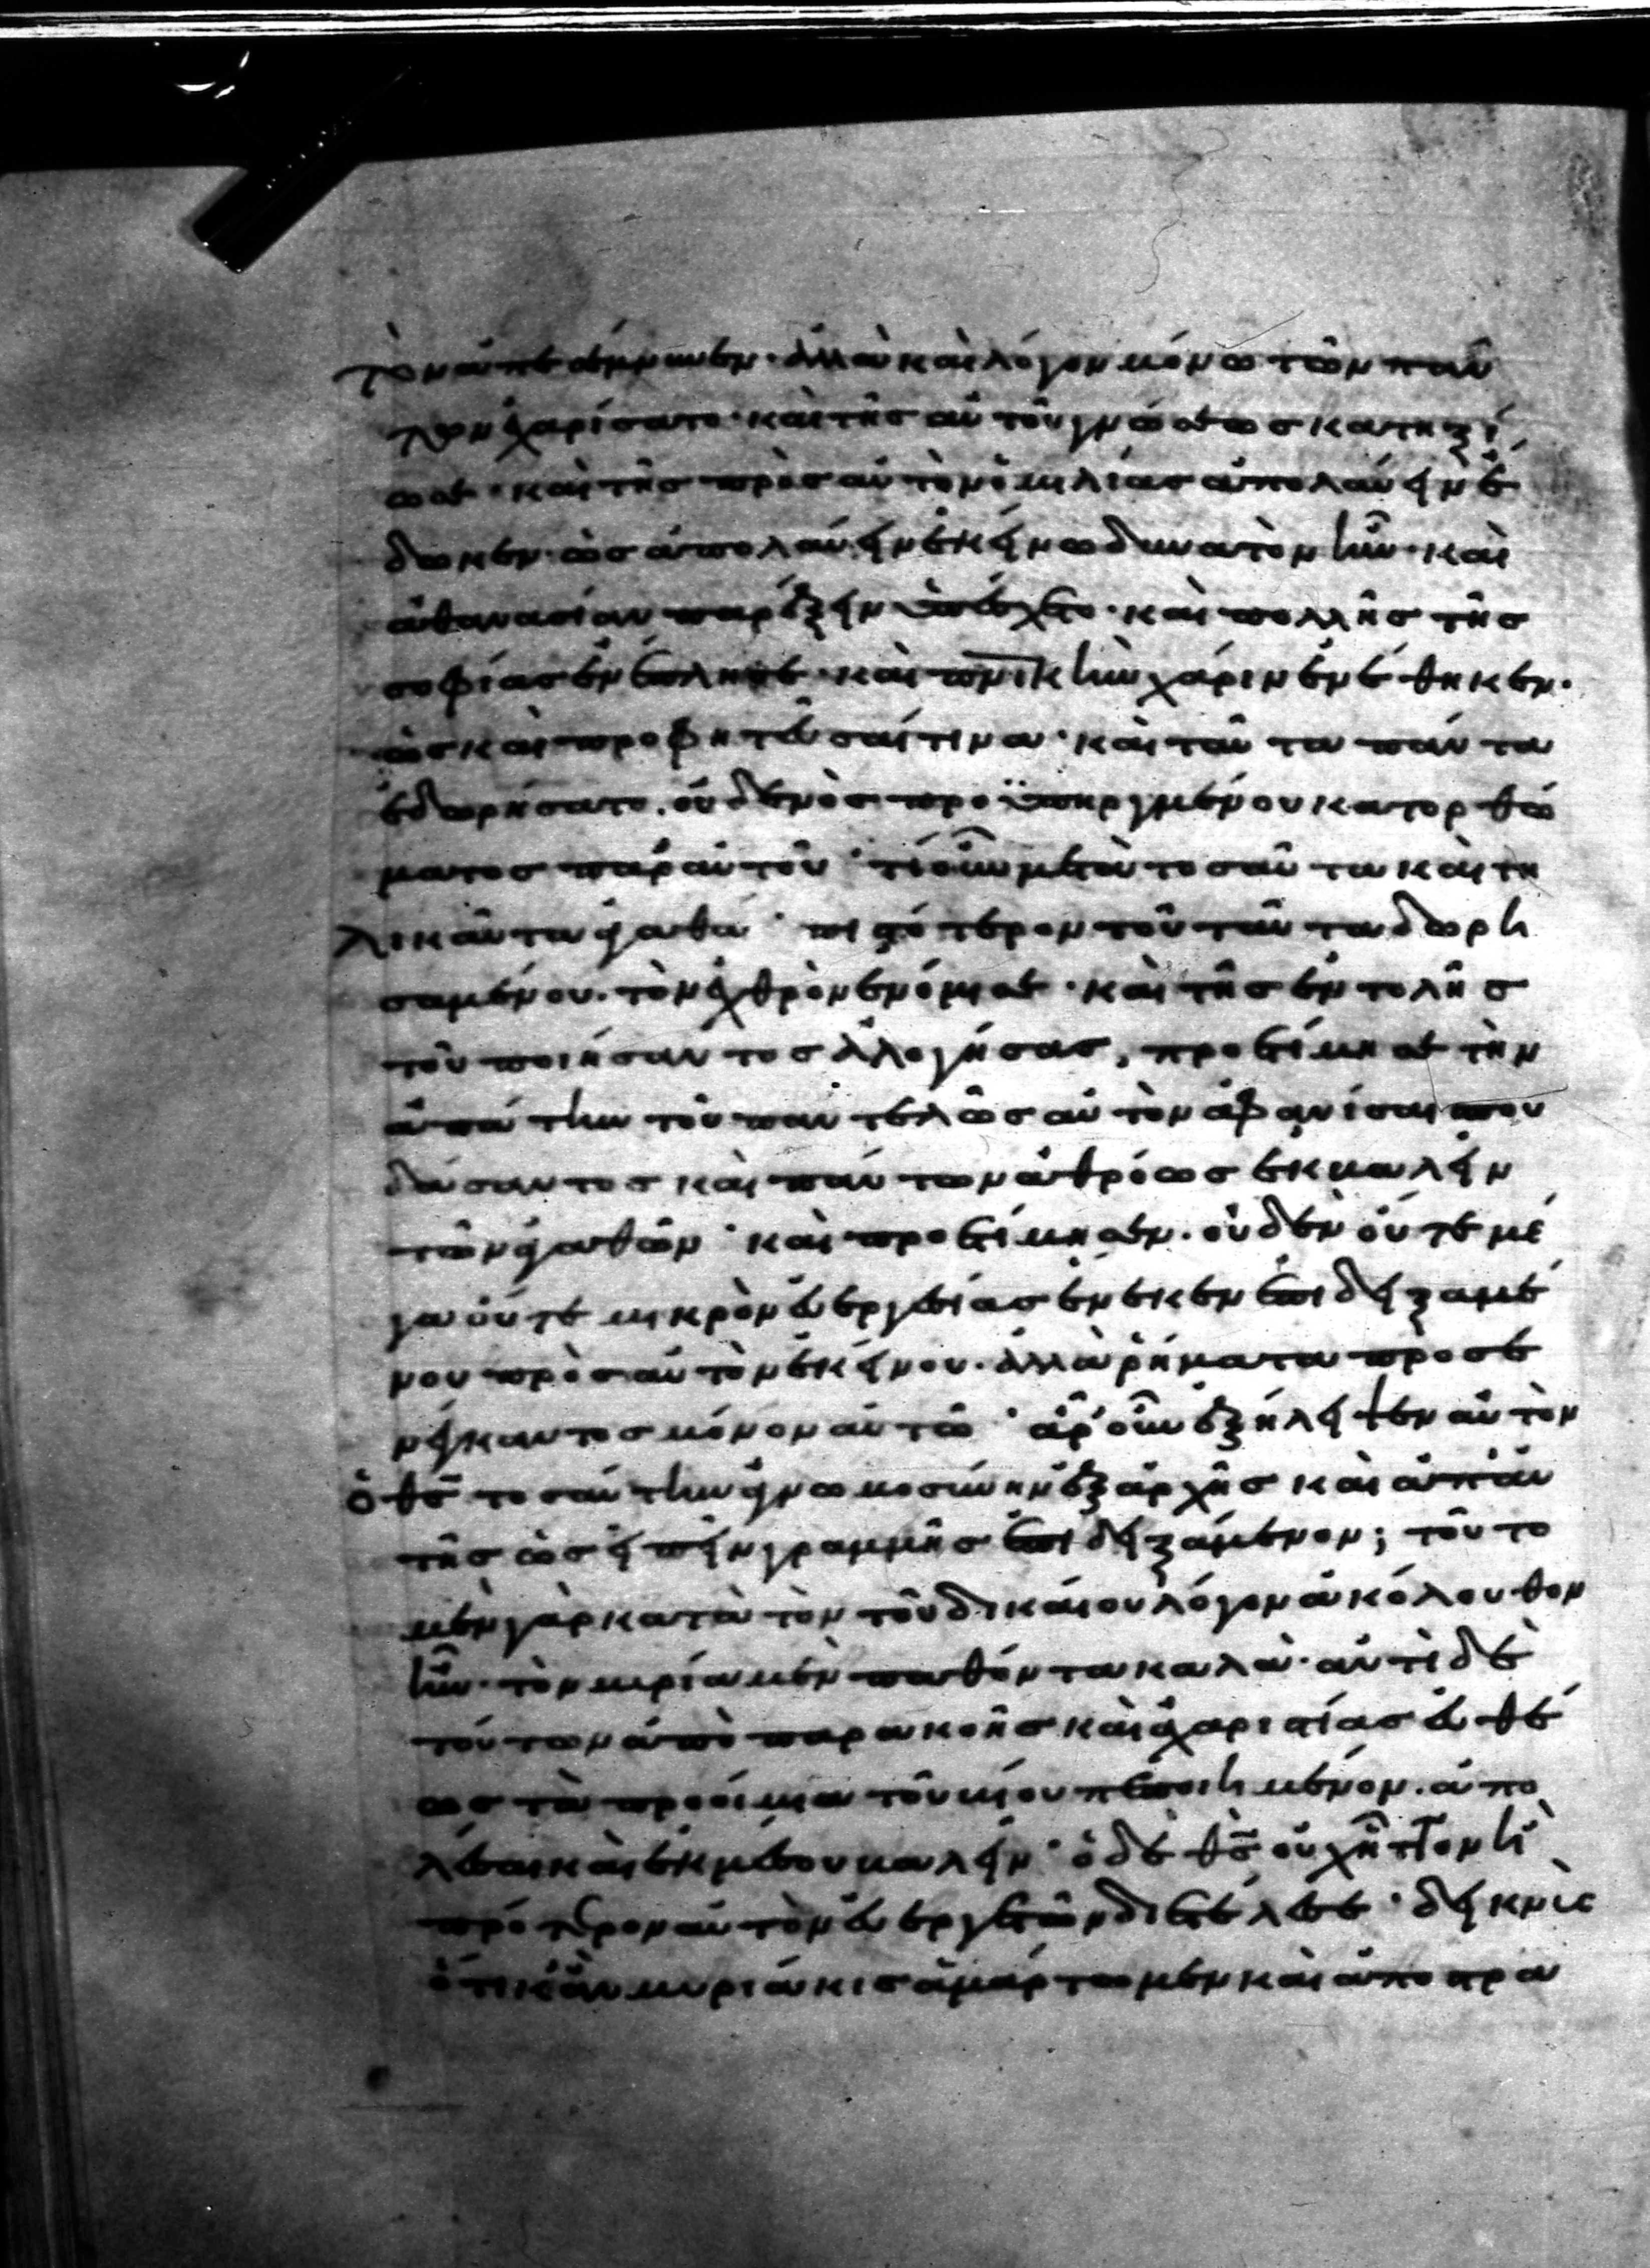 τρον ἀπέφηνεν· ἀλλὰ καὶ λόγον μόνω τῶν πάν
των ἐχαρίσατο· καὶ τῆς αὐτοῦ γνώσεως κατηξί
ωσε· καὶ τῆς πρὸς αὐτὸν ὁμιλίας ἀπολαύειν ἔ
δωκεν· ὡς ἀπολαύειν ἐκείνω δυνατὸν ἦν· καὶ
ἀθανασίαν παρέξειν ὑπέσχετο· καὶ πολλῆς τῆς
σοφίας ἐνέπλησε· καὶ πνικὴν χάριν ἐνέθηκεν·
ὡς καὶ προφητεῦσαί τινα· καὶ ταῦτα πάντα
ἐδωρήσατο. οὐδενὸς προϋπηργμένου κατορθώ
ματος παρ' αὐτοῦ· τί οὖν μετὰ τοσαῦτα καὶ τη
λικαῦτα ἀγαθά· πιστότερον τοῦ ταῦτα δωρη
σαμένου. τὸν ἐχθρὸν ἐνόμισε· καὶ τῆς ἐντολῆς
τοῦ ποιήσαντος ἀλογήσας, προετίμησε τὴν
ἀπάτην τοῦ παντελῶς αὐτὸν ἀφανίσαι σπου
δάσαντος καὶ πάντων ἀθρόως ἐκβαλεῖν
τῶν ἀγαθῶν· καὶ προετίμησεν. οὐδὲν οὔτε μέ
γα οὔτε μικρὸν εὐεργεσίας ἕνεκεν ἐπιδειξαμέ
νου πρὸς αὐτὸν ἐκείνου. ἀλλὰ ῥήματα προσε
νείκαντος μόνον αὐτῶ· ἆρ' οὖν ἐξήλειψεν αὐτὸν
ὁ θς τοσαύτην ἀγνωμοσύνην ἐξ ἀρχῆς καὶ ἀπ' αὐ
τῆς ὡς εἰπεῖν γραμμῆς ἐπιδειξάμενον; τοῦτο
μὲν γὰρ κατὰ τὸν τοῦ δικαίου λόγον ἀκόλουθον
ἦν· τὸν μυρία μὲν παθόντα καλὰ· ἀντὶ δὲ
τούτων ἀπὸ παρακοῆς καὶ ἀχαριστίας εὐθέ
ως τὰ προοίμια τοῦ βίου πεποιημένον. ἀπο
λέσαι καὶ ἐκ μέσου βαλεῖν· ὁ δὲ θς οὐχ ἧττον ἢ
πρότερον αὐτὸν εὐεργετῶν διετέλεσε· δεικνὺς
ὅτι κἂν μυριάκις ἁμάρτωμεν καὶ ἀποστρα